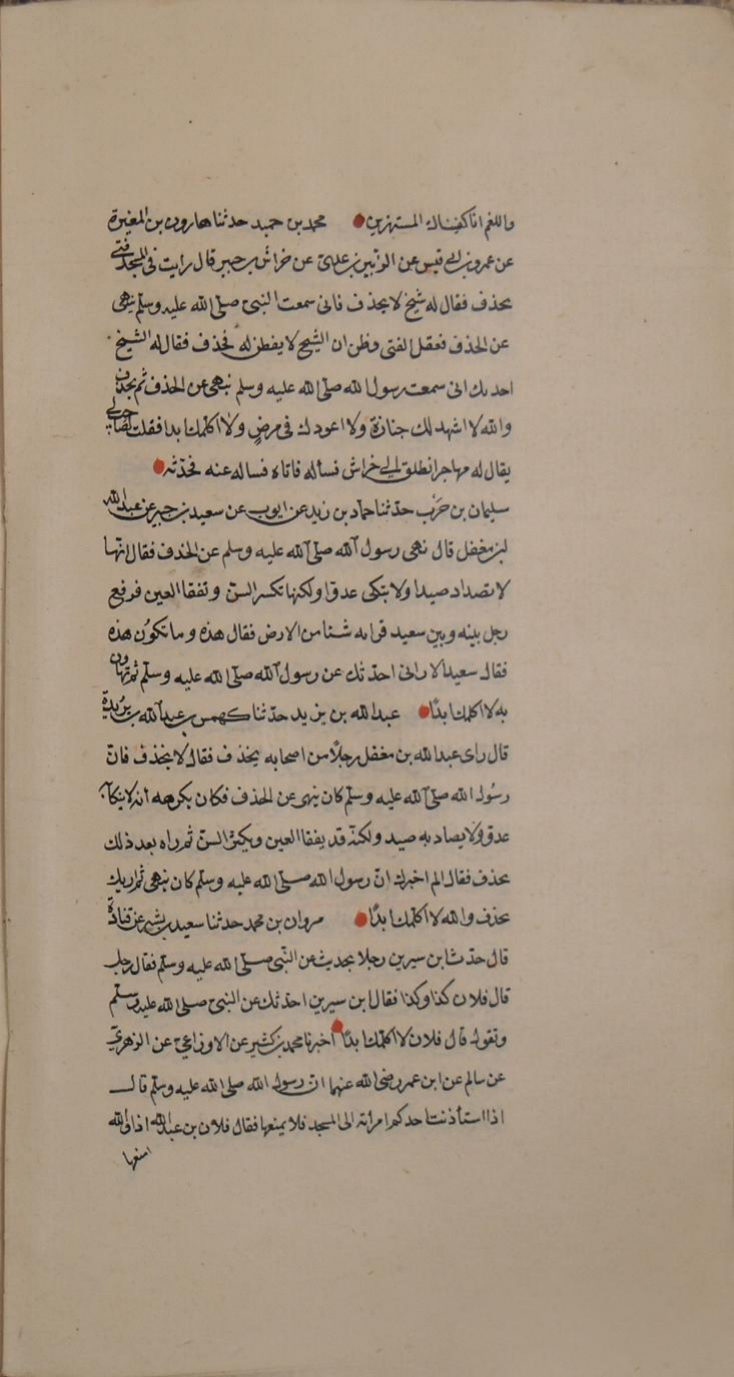 وللفم انا كفيناك المستهزين محمد بن حميد حدثنا هارون بن المغيرة
عن عمرو بن ابي قيس عن الزبير بن عدي عن خراش بن جبير قال رايت في المسجد فتى
يحذف فقال له شيخ لا يحذف فاني سمعت النبي صلى الله عليه وسلم نهى
عن الحذف فغفل الفتى وظن ان الشيخ لا يفطن له فحذف فقال له الشيخ
احدثك اني سمعت رسول الله صلى الله عليه وسلم نهى عن الحذف ثم تحذف
والله لا اشهد لك جنازة ولا اعودك في مرض ولا اكلمك ابدا فقلت لصاحب لي
يقال له مهاجر انطلق الى خراش فسأله فاتاه فساله عنه فحدثه
سليمان بن حرب حدثنا حماد بن زيد عن ايوب عن سعيد بن جبير عن عبد الله
بن مغفل قال نهى رسول الله صلى الله عليه وسلم عن الحذف فقال انها
لا تصطاد صيدا ولا تنكى عدوا ولكنها تكسر السن وتفقا العين فرفع
رجل بينه وبين سعيد قرابه شيئا من الارض فقال هذه وما تكون هذه
فقال سعيد الا اراني احدثك عن رسول الله صلى الله عليه وسلم ثم تهاون
به لا اكلمك ابدا عبد الله بن يزيد حدثنا كهمس بن عبد الله بن بريدة
قال راى عبد الله بن مغفل رجلا من اصحابه يحذف فقال لا تحذف فان
رسول الله صلى الله عليه وسلم كان ينهى عن الحذف فكان يكرهه انه لا ينكا به
عدو ولا يصاد به صيد ولكنه قد يفقا العين ويكسر السن ثم راه بعد ذلك
يحذف فقال الم اخبرك ان رسول الله صلى الله عليه وسلم كان ينهى ثم اريك
تحذف والله لا اكلمك ابدا مروان بن محمد حدثنا سعيد بن بشير عن قتادة
قال حدث ابن سيرين رجلا بحديث عن النبي صلى الله عليه وسلم فقال رجل
قال فلان كذا وكذا فقال ابن سيرين احدثك عن النبي صلى الله عليه وسلم
وتقول قال فلان لا اكلمك ابدا اخبرنا محمد بن كثير عن الاوزاعي عن الزهري
عن سالم عن ابن عمر رضى الله عنهما ان رسول الله صلى الله عليه وسلم قال
اذا استأذنت احدكم امرأته الى المسجد فلا يمنعها فقال فلان بن عبد الله اذا والله
امنعها